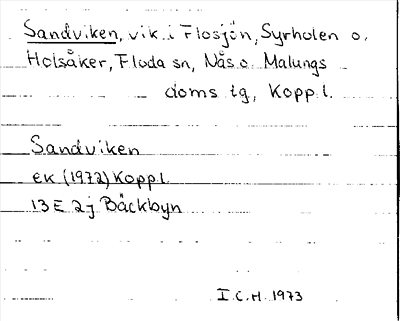 Sandviken, vik i Flosjön, Syrholen o.
Holsåker, Floda sn, Nås o. Malungs
doms tg, Koppl.
Sandviken
ek (1972) Koppl.
13E 2j Bäckbyn
I.C.H. 1973